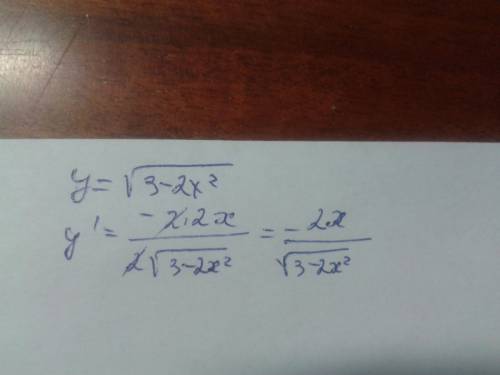 y = √(3-2x²)
y' = (-2·2x)/(2√(3-2x²)) = -2x/√(3-2x²)